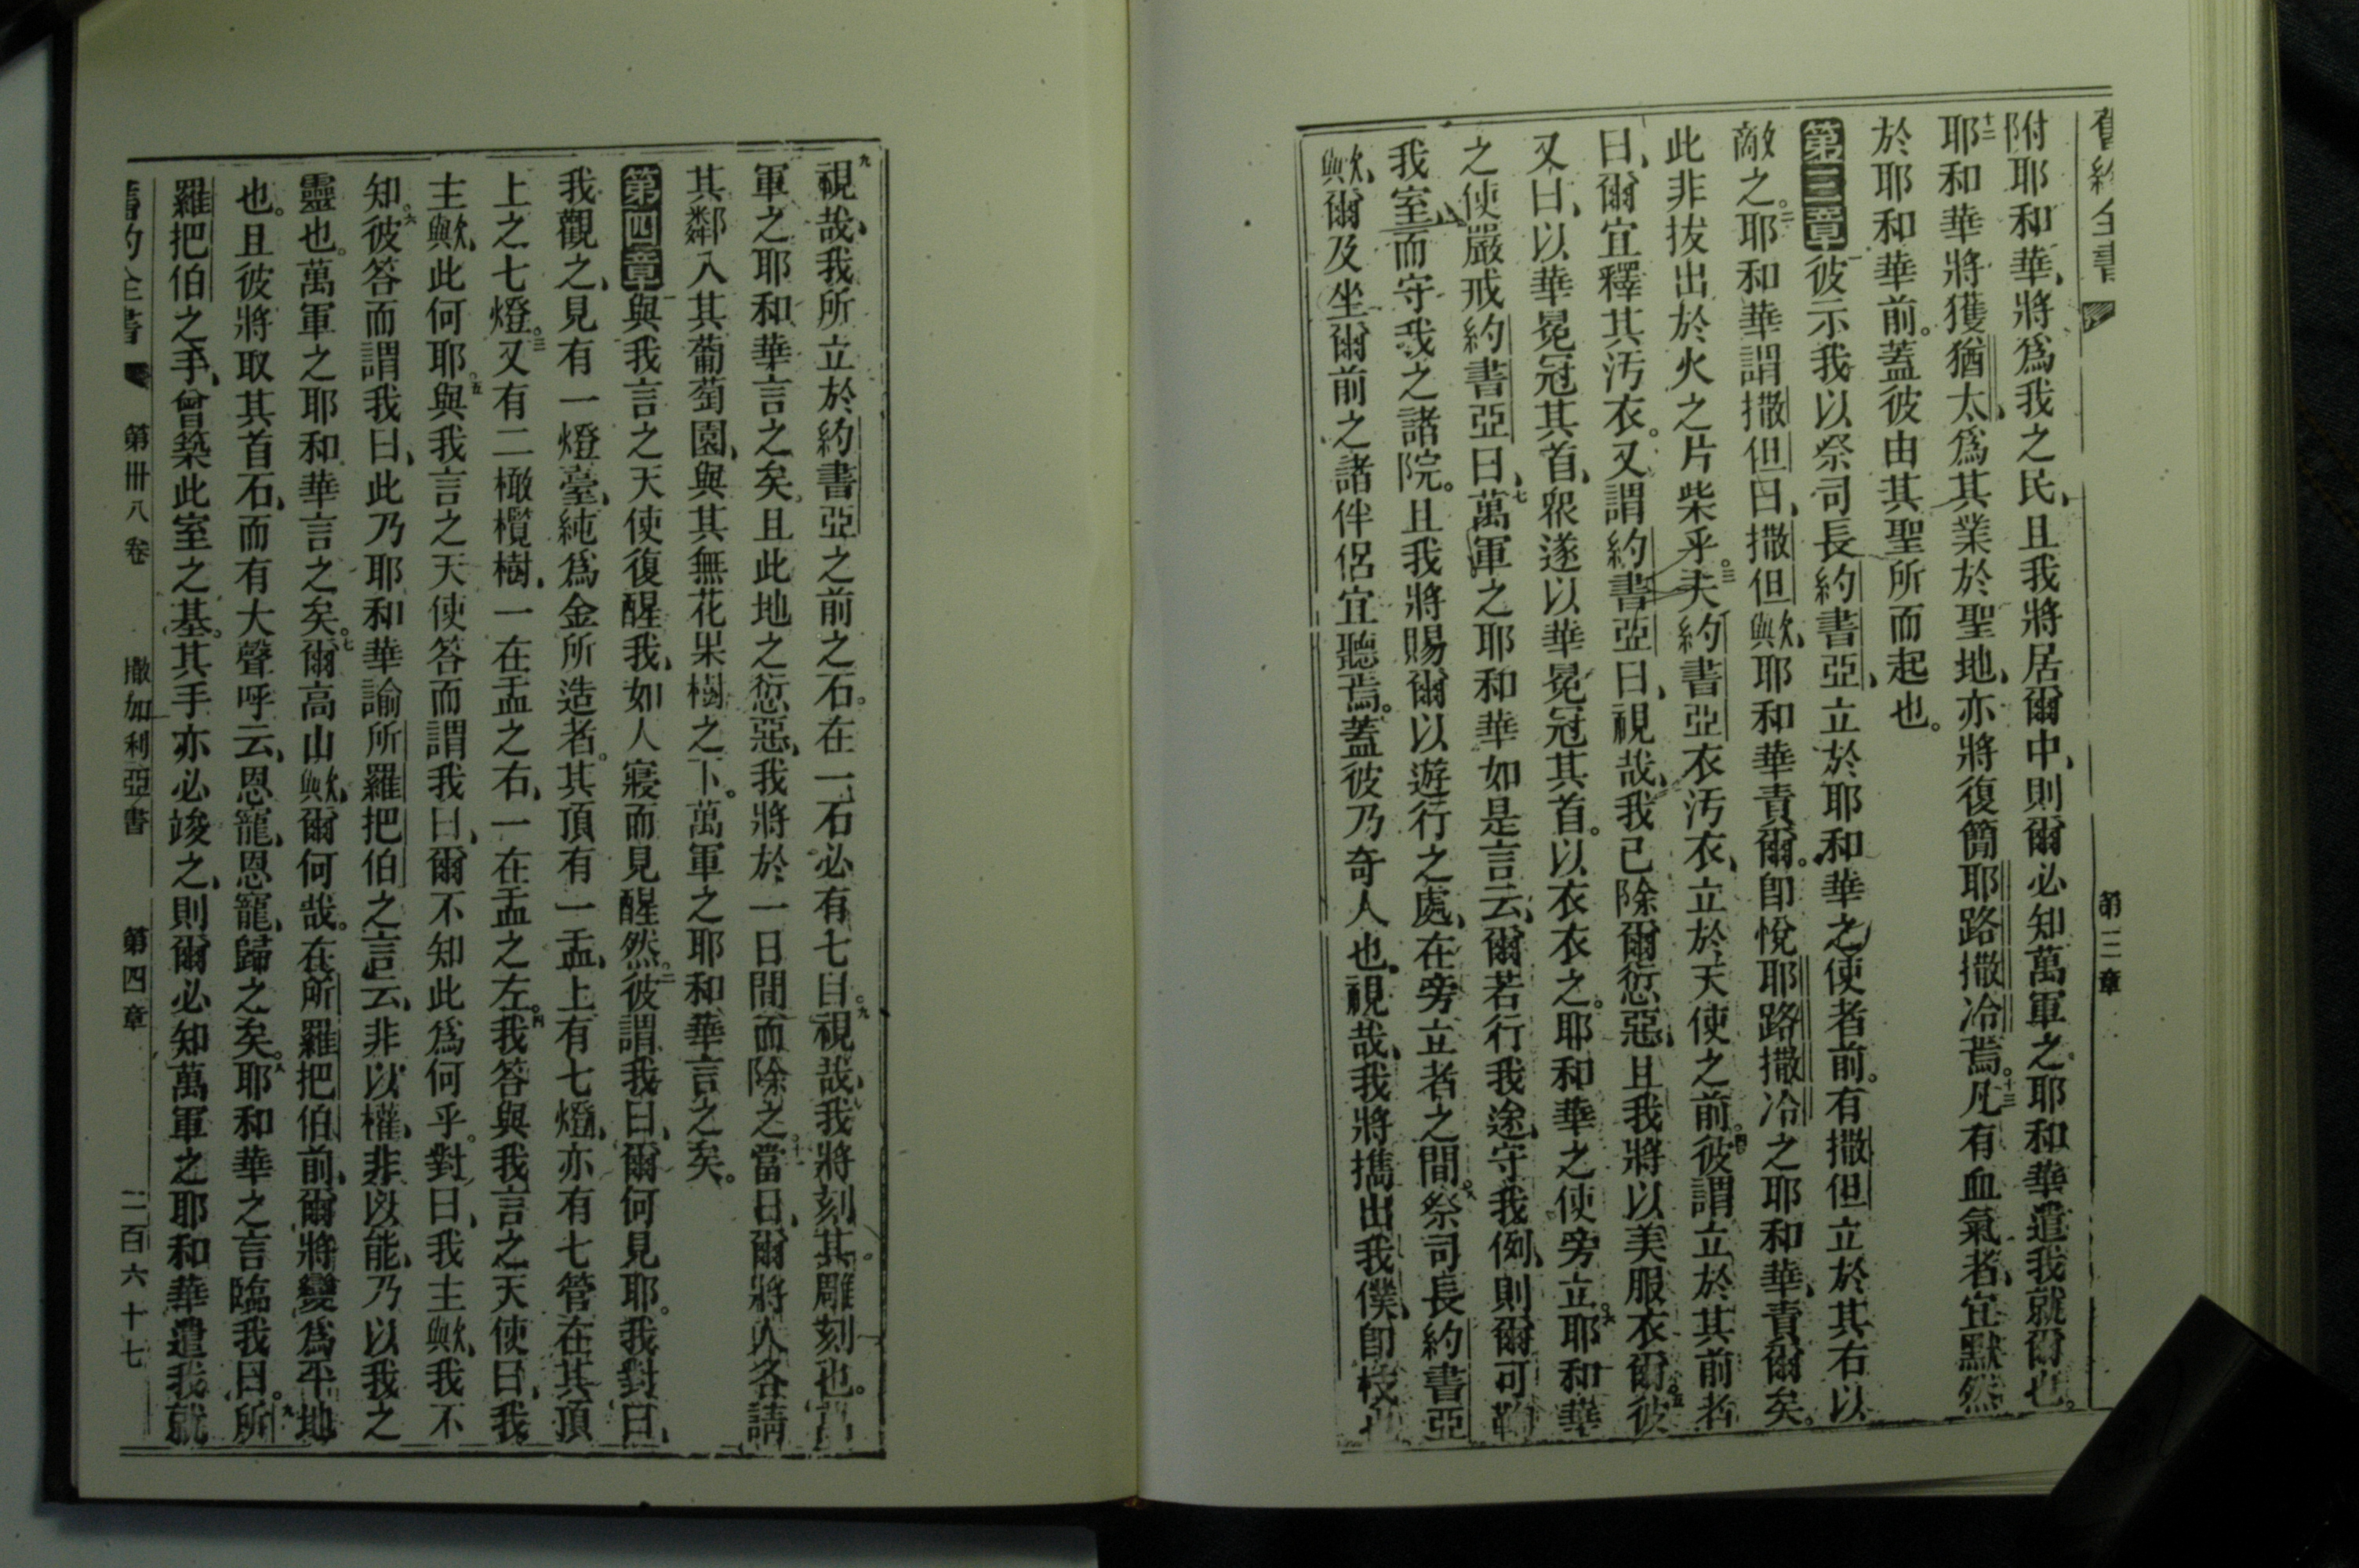 舊約全書 第三章
附耶和華、將爲我之民、且我將居爾中、則爾必知萬軍之耶和華遣我就爾也。
十二耶和華將獲猶太、爲其業於聖地、亦將復簡耶路撒冷焉。十三凡有血氣者、宜默然
於耶和華前。蓋彼由其聖所而起也。
第三章彼示我以祭司長約書亞、立於耶和華之使者前。有撒但立於其右以
敵之。二耶和華謂撒但曰、撒但歟、耶和華責爾。卽悅耶路撒冷之耶和華、責爾矣。
此非拔出於火之片柴乎。三夫約書亞衣汚衣、立於天使之前。四彼謂立於其前者
曰、爾宜釋其汚衣。又謂約書亞曰、視哉、我已除爾愆惡、且我將以美服衣爾。五彼
又曰、以華冕冠其首、衆遂以華冕冠其首。以衣衣之。耶和華之使旁立。六耶和華
之使嚴戒約書亞曰、七萬軍之耶和華如是言云、爾若行我途、守我例、則爾可
我室、而守我之諸院。且我將賜爾以遊行之處、在旁立者之間。八祭司長約書亞
歟、爾及坐爾前之諸伴侶宜聽焉。蓋彼乃奇人也。視哉、我將擕出我僕、卽枝也
九視哉、我所立於約書亞之前之石。在一石必有七目。九視哉、我將刻其雕刻也。萬
軍之耶和華言之矣。且此地之愆惡、我將於一日間而除之。十當日、爾將人各請
其鄰入其葡萄園、與其無花果樹之下。萬軍之耶和華言之矣。
第四章與我言之天使復醒我、如人寢而見醒然。二彼謂我曰、爾何見耶。我對曰、
我觀之、見有一燈臺、純爲金所造者。其頂有一盂、上有七燈、亦有七管在其頂
上之七燈。三又有二橄欖樹、一在盂之右、一在盂之左。四我答與我言之天使曰、我
主歟、此何耶。五與我言之天使答而謂我曰、爾不知此爲何乎。對曰、我主歟、我不
知。六彼答而謂我曰、此乃耶和華諭所羅把伯之言云、非以權、非以能、乃以我之
靈也。萬軍之耶和華言之矣。七爾高山歟、爾何哉。在所羅把伯前、爾將變爲平地
也。且彼將取其首石、而有大聲呼云、恩寵、恩寵、歸之矣。八耶和華之言臨我曰。九所
羅把伯之手、曾築此室之基。其手亦必竣之、則爾必知萬軍之耶和華遣我就
舊約全書 第卅八卷 撒加利亞書 第四章 二百六十七